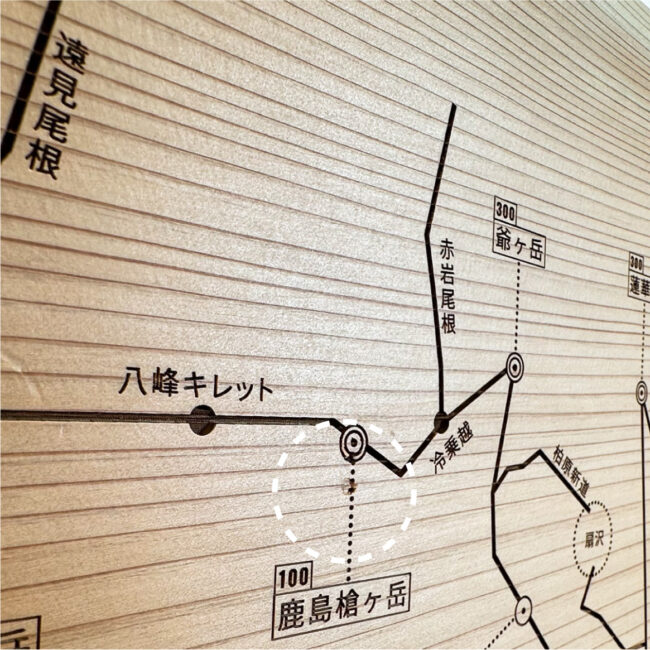 遠見尾根
300
爺ヶ岳
赤岩尾根
300
八峰キレット
冷乗越
柏原新道
扇沢
100
鹿島槍ヶ岳